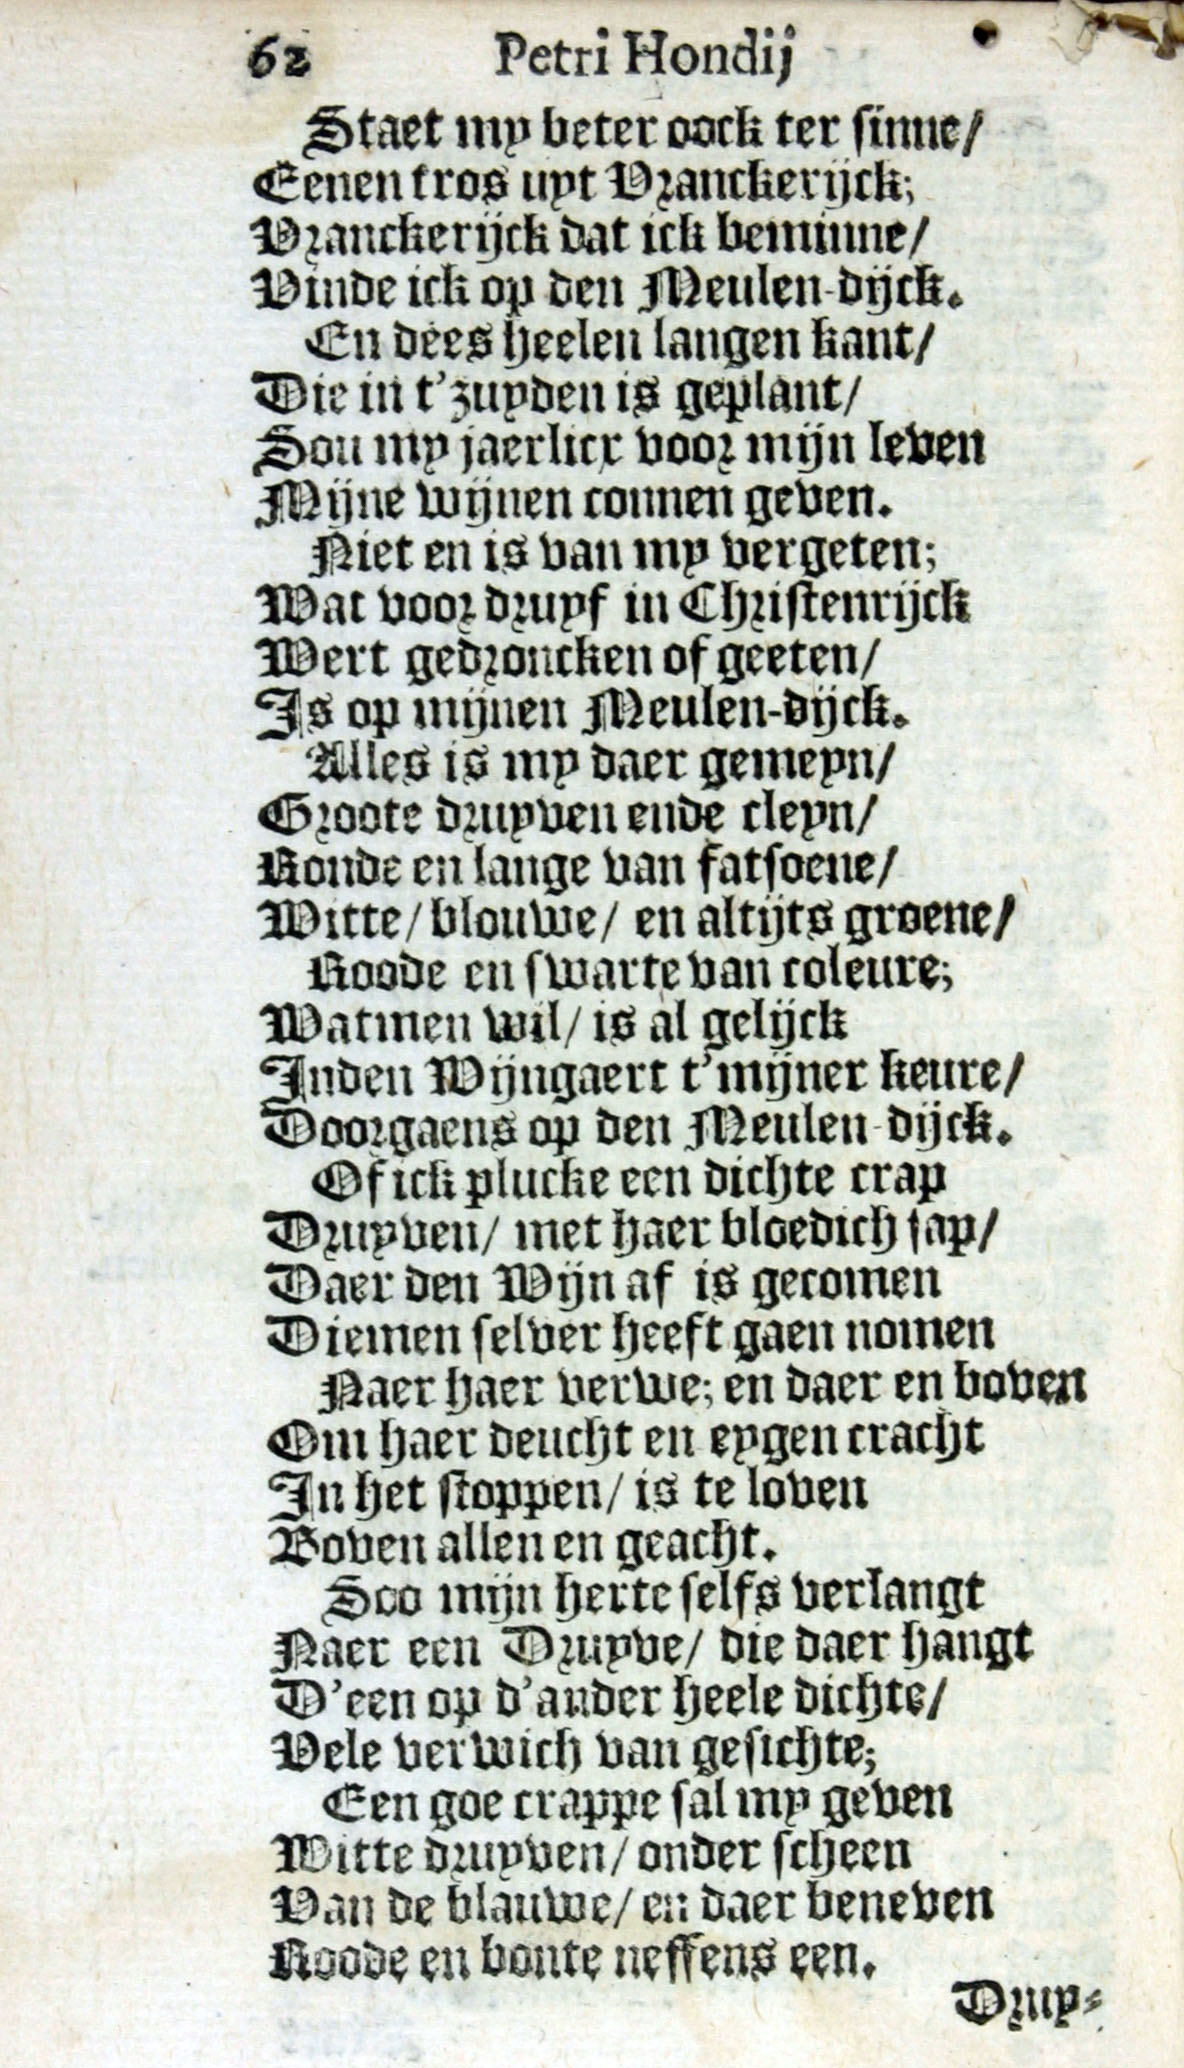 62 Petri Hondij
Staet my beter oock ter sinne/
Eenen tros uyt Vranckerijck;
Vranckerijck dat ick beminne/
Vinde ick op den Meulen-dijck.
En dees heelen langen kant/
Die in t'zuyden is geplant/
Sou my jaerlicx voor mijn leven
Mijne wijnen connen geven.
Niet en is van my vergeten;
Wat voor druyf in Christenrijck
Wert gedroncken of geeten/
Is op mijnen Meulen-dijck.
Alles is my daer gemeyn/
Groote druyven ende cleyn/
Ronde en lange van fatsoene/
Witte/ blouwe/ en altijts groene/
Roode en swarte van coleure;
Watmen wil/ is al gelijck
Inden Wijngaert t'mijner keure/
Doorgaens op den Meulen-dijck.
Of ick plucke een dichte crap
Druyven/ met haer bloedich sap/
Daer den Wijn af is gecomen
Diemen selver heeft gaen nomen
Naer haer verwe; en daer en boven
Om haer deucht en eygen cracht
In het stoppen/ is te loven
Boven allen en geacht.
Soo mijn herte selfs verlangt
Naer een Druyve/ die daer hangt
D'een op d'ander heele dichte/
Vele verwich van gesichte;
Een goe crappe sal my geven
Witte druyven/ onder scheen
Van de blauwe/ en daer beneven
Roode en bonte neffens een.
Druy-